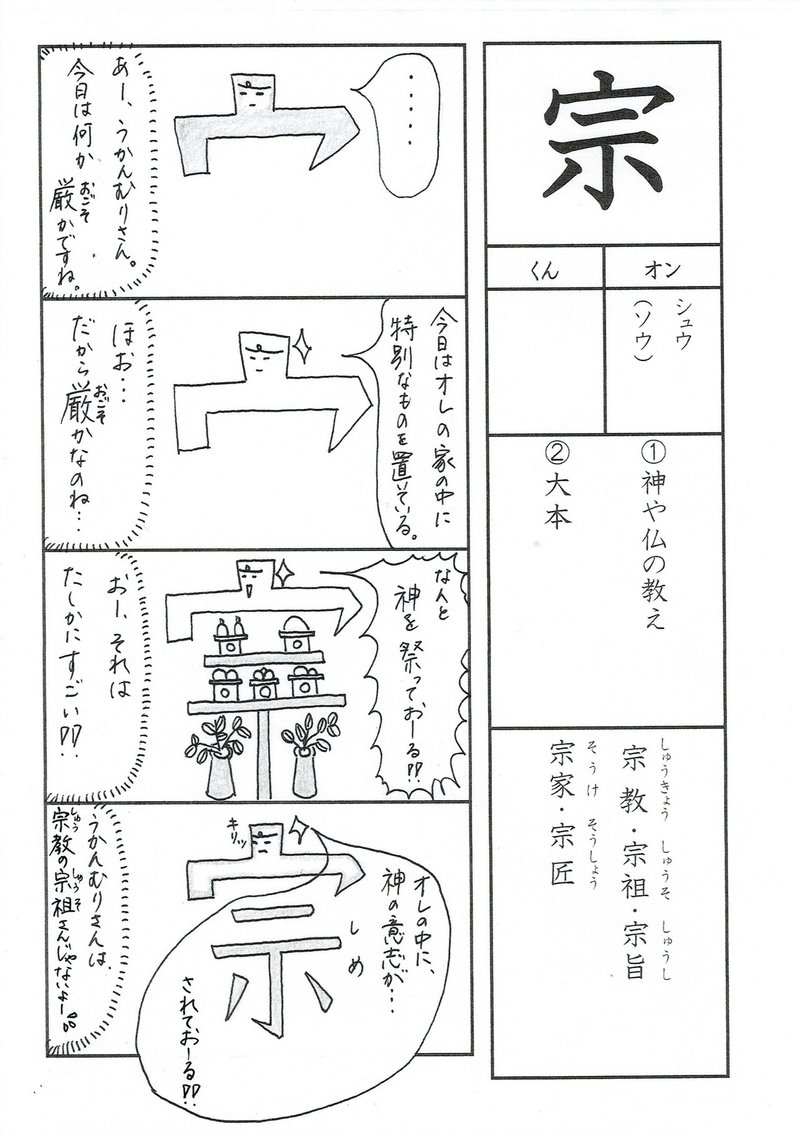 宗
オン
くん
シュウ
（ソウ）
①神や仏の教え
②大本
しゅうきょう しゅうそ しゅうし
宗教・宗祖・宗旨
そうけ そうしょう
宗家・宗匠
・・・・・
あー、うかんむりさん。
今日は何か
おごそ
厳かですね。
今日はオレの家の中に
特別なものを置いている。
ほお…
おごそ
だから厳かなのね…
なんと
神を祭っておーる!!
おー、それは
たしかにすごい!!
キリッ
オレの中に、
神の意志が…
しめ
示
されておーる!!
うかんむりさんは、
しゅう しゅうそ
宗教の宗祖さんじゃないよー!!